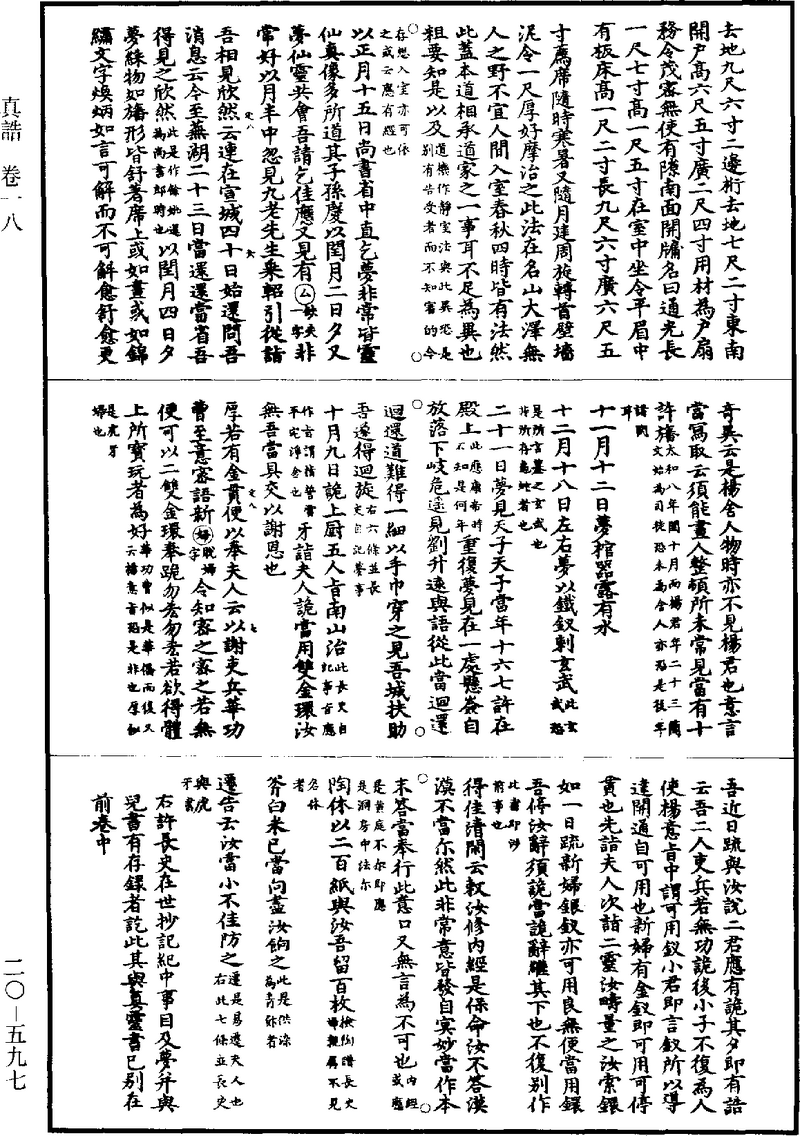 真誥　卷一八
二〇－五九七
去地九尺六寸二邊桁去地七尺二寸東南
開戶高六尺五寸廣二尺四寸用材為戶扇
務令茂密無使有隙南面開牖名曰通光長
一尺七寸高一尺五寸在室中坐令平眉中
有板床高一尺二寸長九尺六寸廣六尺五
寸薦席隨時寒暑又隨月建周旋轉首壁墻
泥令一尺厚好摩治之此法在名山大澤無
人之野不宜人間入室春秋四時皆有法然
此蓋本道相承道家之一事耳不足為異也
粗要知是以及道機作靜室法與此異恐是別有告受者而不知審的今
存想入室亦可依之或云應有經也
以正月十五日尚書省中直乞夢非常皆靈
仙真像多所道其子孫慶以閏月二日夕又
夢仙靈共會吾請乞佳應又見有厶缺失一字非
常好以月半中忽見九老先生乘軺引從詣
吾相見欣然云連在宣城四十日始還問吾
消息云今至蕪湖二十三日當還還當省吾
得見之欣然此是作餘姚還為尚書郎時也以閏月四日夕
夢綵物如旛形皆舒著席上或如畫或如錦
繡文字煥炳如言可解而不可解愈舒愈更
奇異云是楊舍人物時亦不見楊君也意言
當寫取云須能畫人整頓所未常見當有十
許旛太和八年閏十月而楊君年二十三簡文始為司徒恐未為舍人亦恐是後年諸閏耳
十一月十二日夢棺器露有水
十二月十八日左右夢以鐵釵刺玄武此玄武恐是所言墓之玄武也非所存龜蛇者也
二十一日夢見天子天子當年十六七許在
殿上此應康帝時不知是何年重復夢見在一處懸崟自
放落下岐危遠見劉升遠與語從此當迴還
迴還道難得一細以手巾穿之見吾城扶助
吾遂得迴旋右六條並長史自記夢事
十月九日詭上厨五人旨南山治此長史自記事吉應作言謂精誓當平定淨舍也牙詣夫人詭當用雙金環汝
無吾當具交以謝恩也
厚若有金貫便以奉夫人云以謝吏兵華功
曹至意密語新婦脫婦字令知密之密之若無
便可以二雙金環奉跪勿忘勿忘若欲得體
上所寶玩者為好華功曹似是華僑而復又云播意旨恐是非也厚似是虎牙婦也
吾近日疏與汝說二君應有詭其夕即有誥
云吾二人吏兵若無功詭後小子不復為人
使楊意旨中謂可用釵小君即言釵所以導
達開通自可用也新婦有金釵即可用可停
貫也先詣夫人次詣二靈汝疇量之汝索鐶
如一日疏新婦銀釵亦可用良無便當用鐶
吾停汝辭須詭當詭辭繼其下也不復別作
此書即涉前事也
得佳清閑云教汝修內經是保命汝不答漠
漠不當尔然此非常意皆發自冥妙當作本
末答當奉行此意口又無言為不可也內經或應是黃庭不尔即應是洞房中法尔
陶休以二百紙與汝吾留百枚檢陶譜長史婦親屬不見名休者
斧白米已當向盡汝餉之此是供染為青𩚁者
遷告云汝當小不佳防之遷是易遷夫人也右此七條並長史與虎牙書
右許長史在世抄記紀中事目及夢并與
兒書有存録者訖此其與真靈書已别在
前卷中